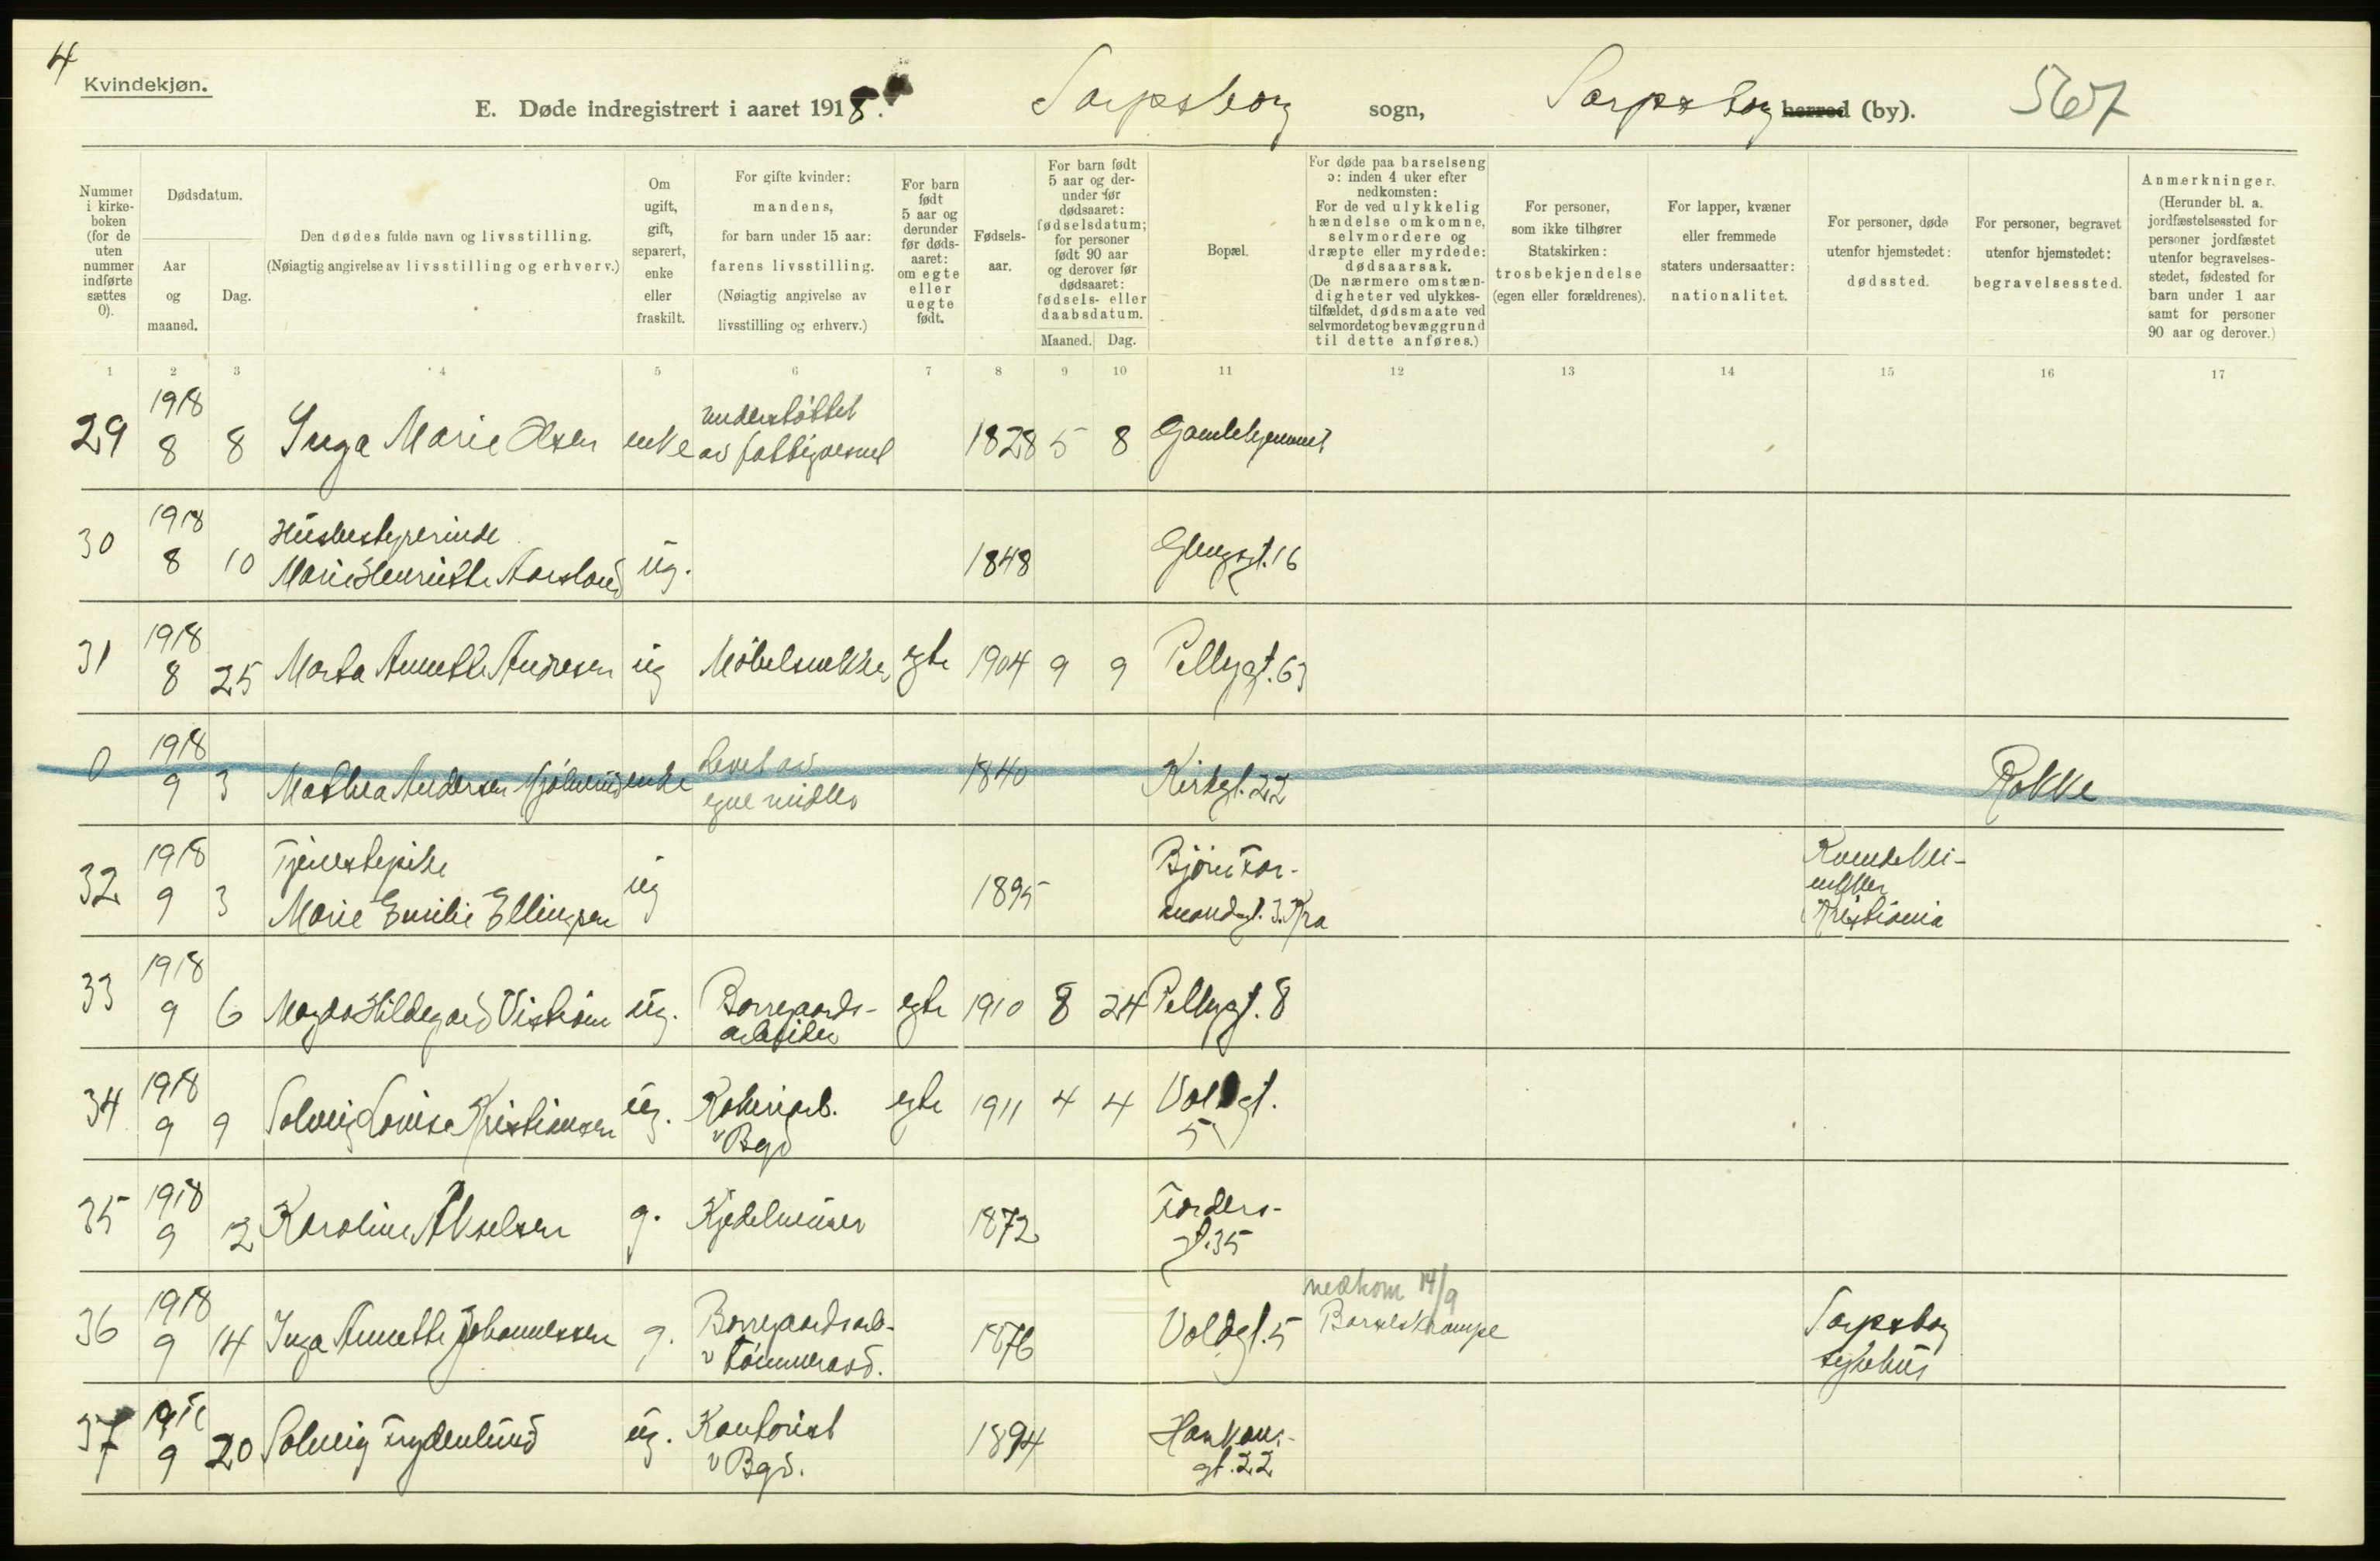 4
Kvindekjøn.
E. Døde indregistrert i aaret 1918. Sarpsborg sogn, Sarpsborg herred (by). 567
Nummer i kirkeboken (for de uten nummer indførte sættes 0).
Dødsdatum.
Aar og maaned.
Dag.
Den dødes fulde navn og livsstilling.
(Nøiagtig angivelse av livsstilling og erhverv.)
Om ugift, gift, separert, enke eller fraskilt.
For gifte kvinder: mandens, for barn under 15 aar: farens livsstilling.
(Nøiagtig angivelse av livsstilling og erhverv.)
For barn født 5 aar og derunder før dødsaaret: om egte eller uegte født.
Fødselsaar.
For barn født 5 aar og derunder før dødsaaret: fødselsdatum; for personer født 90 aar og derover før dødsaaret: fødsels- eller daabsdatum.
Maaned. Dag.
Bopæl.
For døde paa barselseng ɔ: inden 4 uker efter nedkomsten:
For de ved ulykkelig hændelse omkomne, selvmordere og dræpte eller myrdede: dødsaarsak.
(De nærmere omstændigheter ved ulykkestilfældet, dødsmaate ved selvmordet og bevæggrund til dette anføres.)
For personer, som ikke tilhører Statskirken: trosbekjendelse (egen eller forældrenes).
For lapper, kvæner eller fremmede staters undersaatter: nationalitet.
For personer, døde utenfor hjemstedet: dødssted.
For personer, begravet utenfor hjemstedet: begravelsessted.
Anmerkninger.
(Herunder bl. a. jordfæstelsessted for personer jordfæstet utenfor begravelsesstedet, fødested for barn under 1 aar samt for personer 90 aar og derover.)
1 2 3 4 5 6 7 8 9 10 11 12 13 14 15 16 17
1918 understøttet
29 8 8 Inga Marie Olsen enke av fattigvesnet 1828 5 8 Gamlehjemmet
1918 Husbestyrerinde
30 8 10 Marie Henriette Aarsland ug. 1848 Glengsgt. 16
1918
31 8 25 Marta Annette Andresen ug Møbelsnekker egte 1904 9 9 Pellygt. 63
1918 Levet av
0 9 3 Mathea Andersen Mjølnerud enke egne midler 1840 Kirkegt. 22 Rokke
1918 Tjenestepike Bjørn Far- Kvindekli-
32 9 3 Marie Emilie Ellingsen ug 1895 mandsgt. 3. Kra nikken
Kristiania
1918
33 9 6 Magda Hildegard Vistrøm ug. Borregaards- egte 1910 8 24 Pellygt. 8
arbeider
1918
34 9 9 Solveig Lovise Kristiansen ug. Kokeriarb. egte 1911 4 4 Voldgt.
v Bgd 5
1918
35 9 12 Karoline Akselsen g. Kjedelrenser 1872 Torders-
gt. 35
1918 nedkom 14/9
36 9 14 Inga Annette Johannessen g. Borregaardsarb- 1876 Voldgt. 5 Barselskrampe Sarpsborg
v tømmeravd. sykehus
1918
37 9 20 Solveig Frydenlund ug. Kontorist 1894 Haakons-
v Bgd. gt. 22